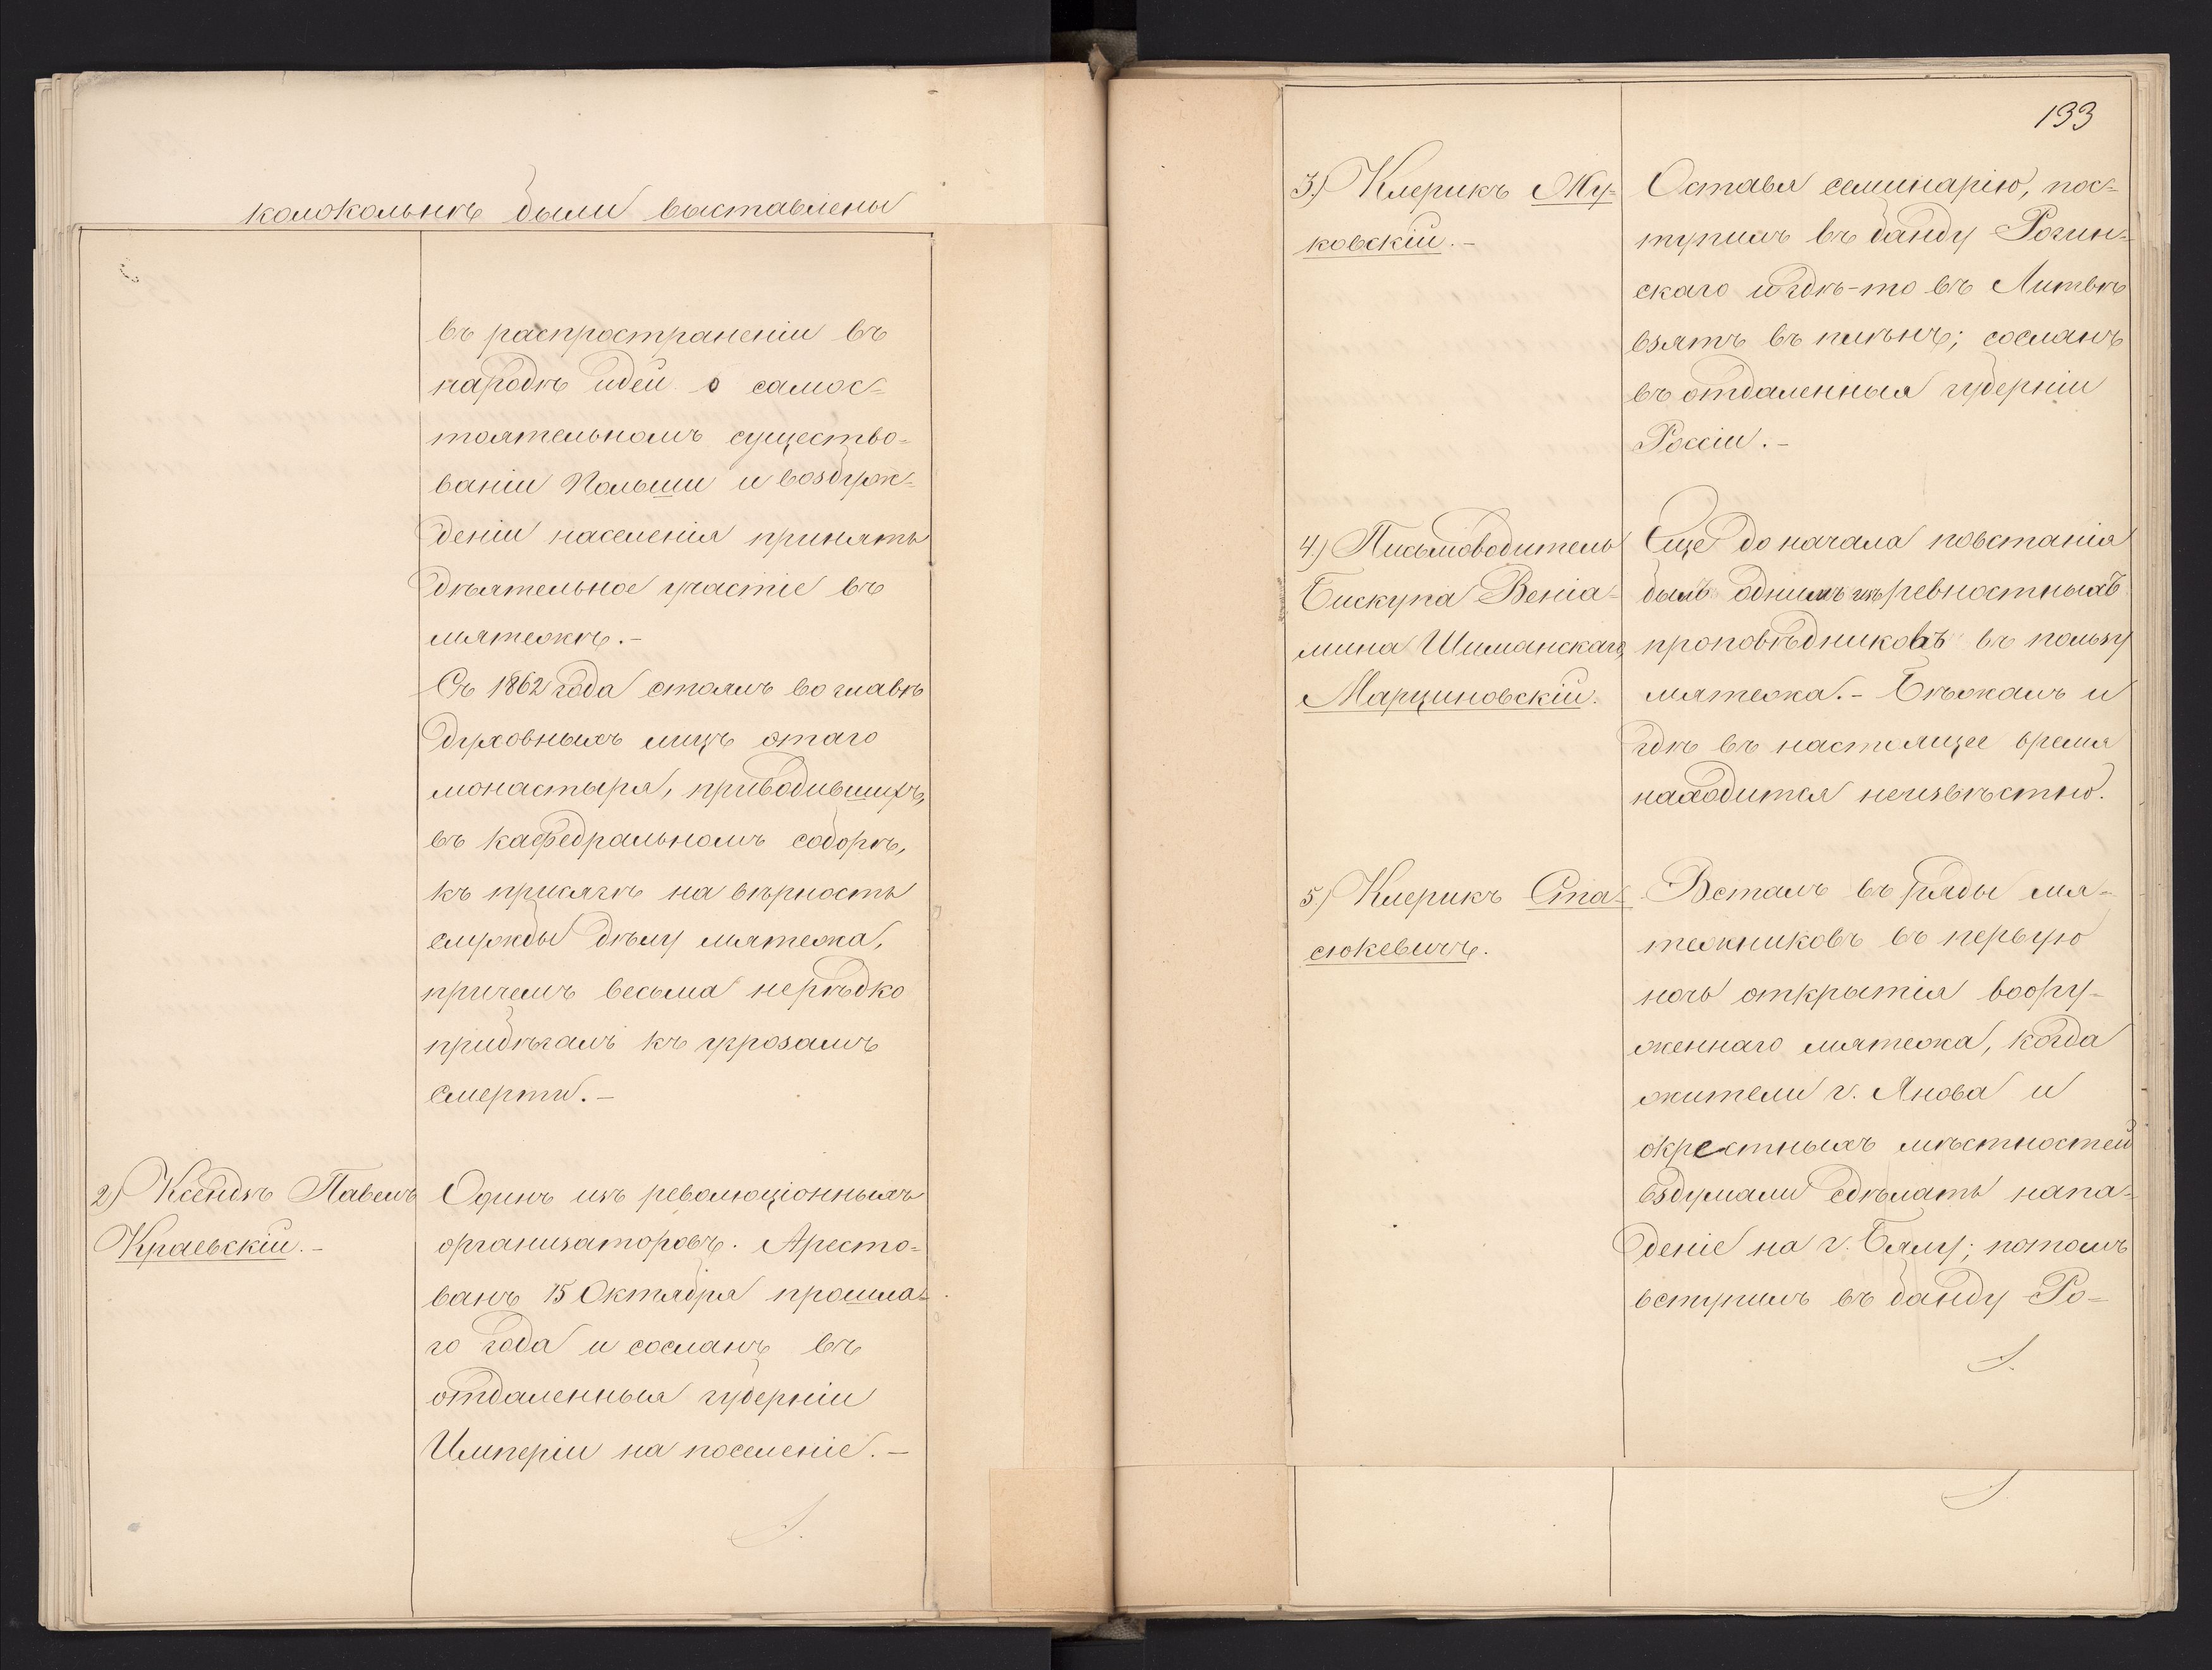 колокольнѣ были выставлены
въ распространеніи въ
народѣ идей о самос-
тоятельномъ существо-
ваніи Польши и возбуж-
деніи населенія принять
дѣятельное участіе въ
мятежѣ.-
Съ 1862 года стоялъ во главѣ
духовныхъ лицъ этаго
монастыря, приводившихъ,
въ кафедральномъ соборѣ,
къ присягѣ на вѣрность
службы дѣлу мятежа,
причемъ весьма нерѣдко
прибѣгалъ къ угрозамъ
смерти.-
2) Ксендзъ Павелъ
Краевскій.-
Одинъ изъ революціонныхъ
организаторовъ. Аресто-
ванъ 15 Октября прошла-
го года и сосланъ въ
отдаленныя губерніи
Имперіи на поселеніе.-
133
3) Клерикъ Жу-
ковскій.-
Оставя семинарію, пос-
тупилъ въ банду Рогин-
скаго и гдѣ-то въ Литвѣ
взятъ въ плѣнъ; сосланъ
въ отдаленныя губерніи
Россіи.-
4) Письмоводитель
Бискупа Веніа-
мина Шиманскаго,
Марциновскій.
Еще до начала повстанія
былъ однимъ изъ ревностныхъ
проповѣдниковъ въ пользу
мятежа.- Бѣжалъ и
гдѣ въ настоящее время
находится неизвѣстно.
5) Клерикъ Ста-
сюкевичъ.
Всталъ въ ряды мя-
тежниковъ въ первую
ночь открытія воору-
женнаго мятежа, когда
жители г. Янова и
окрестныхъ мѣстностей
вздумали сдѣлать напа-
деніе на г. Бялу; потомъ
вступилъ въ банду Ро-